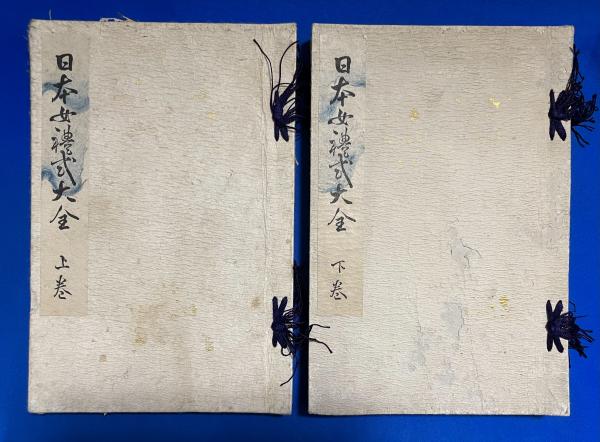 日本女禮式大全 上巻
日本女禮式大全 下巻